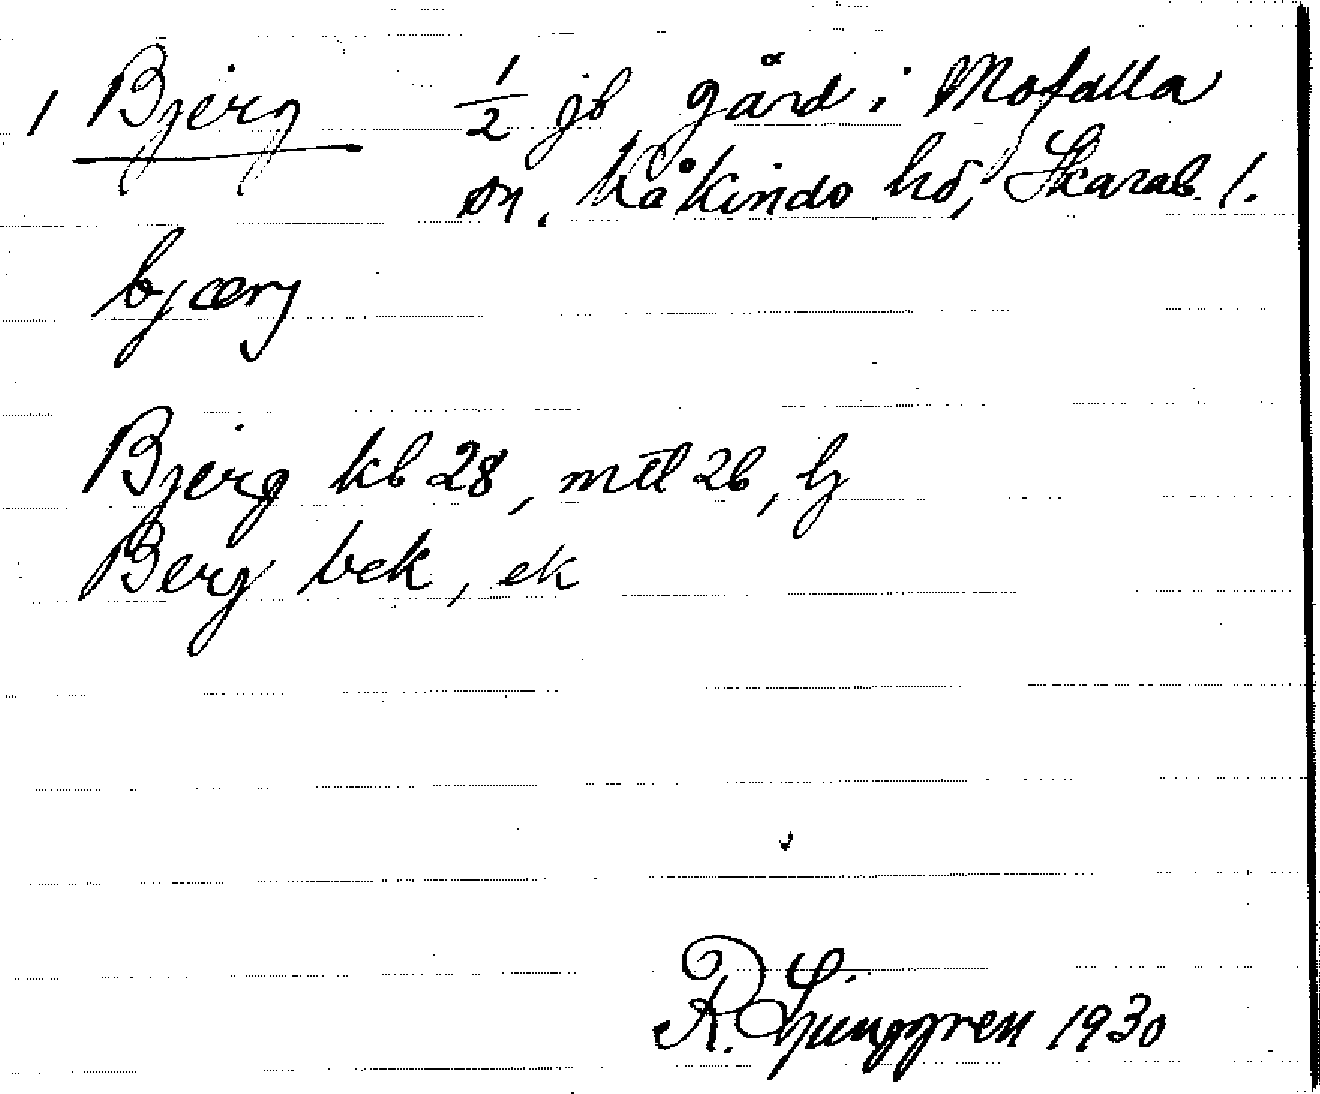 1 Bjerg 1/2 jb gård i Mofalla
sn, Kåkindo hd, Skarab. l.
bjærj
Bjerg kb 28, mtl 26, lj
Berg bek, ek
R. Ljunggren 1930